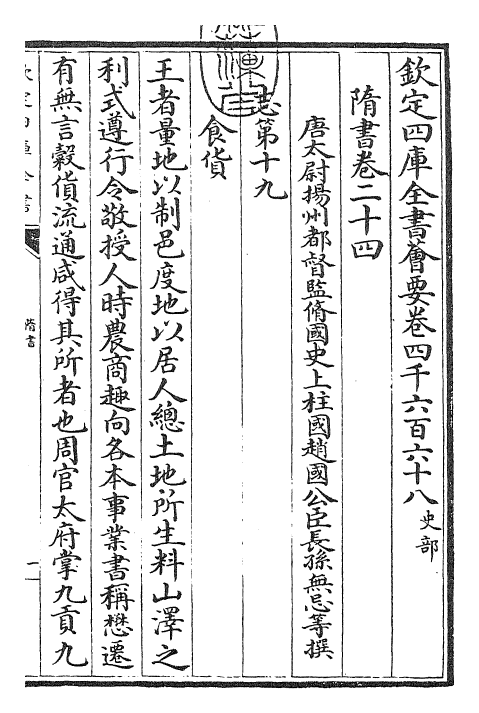 欽定四庫全書薈要卷四千六百六十八 史部
隋書卷二十四
唐太尉揚州都督監脩國史上柱國趙國公臣長孫無忌等撰
志第十九
食貨
王者量地以制邑度地以居人總土地所生料山澤之
利式遵行令敬授人時農商趣向各本事業書稱懋遷
有無言穀貨流通咸得其所者也周官太府掌九貢九
隋書
一